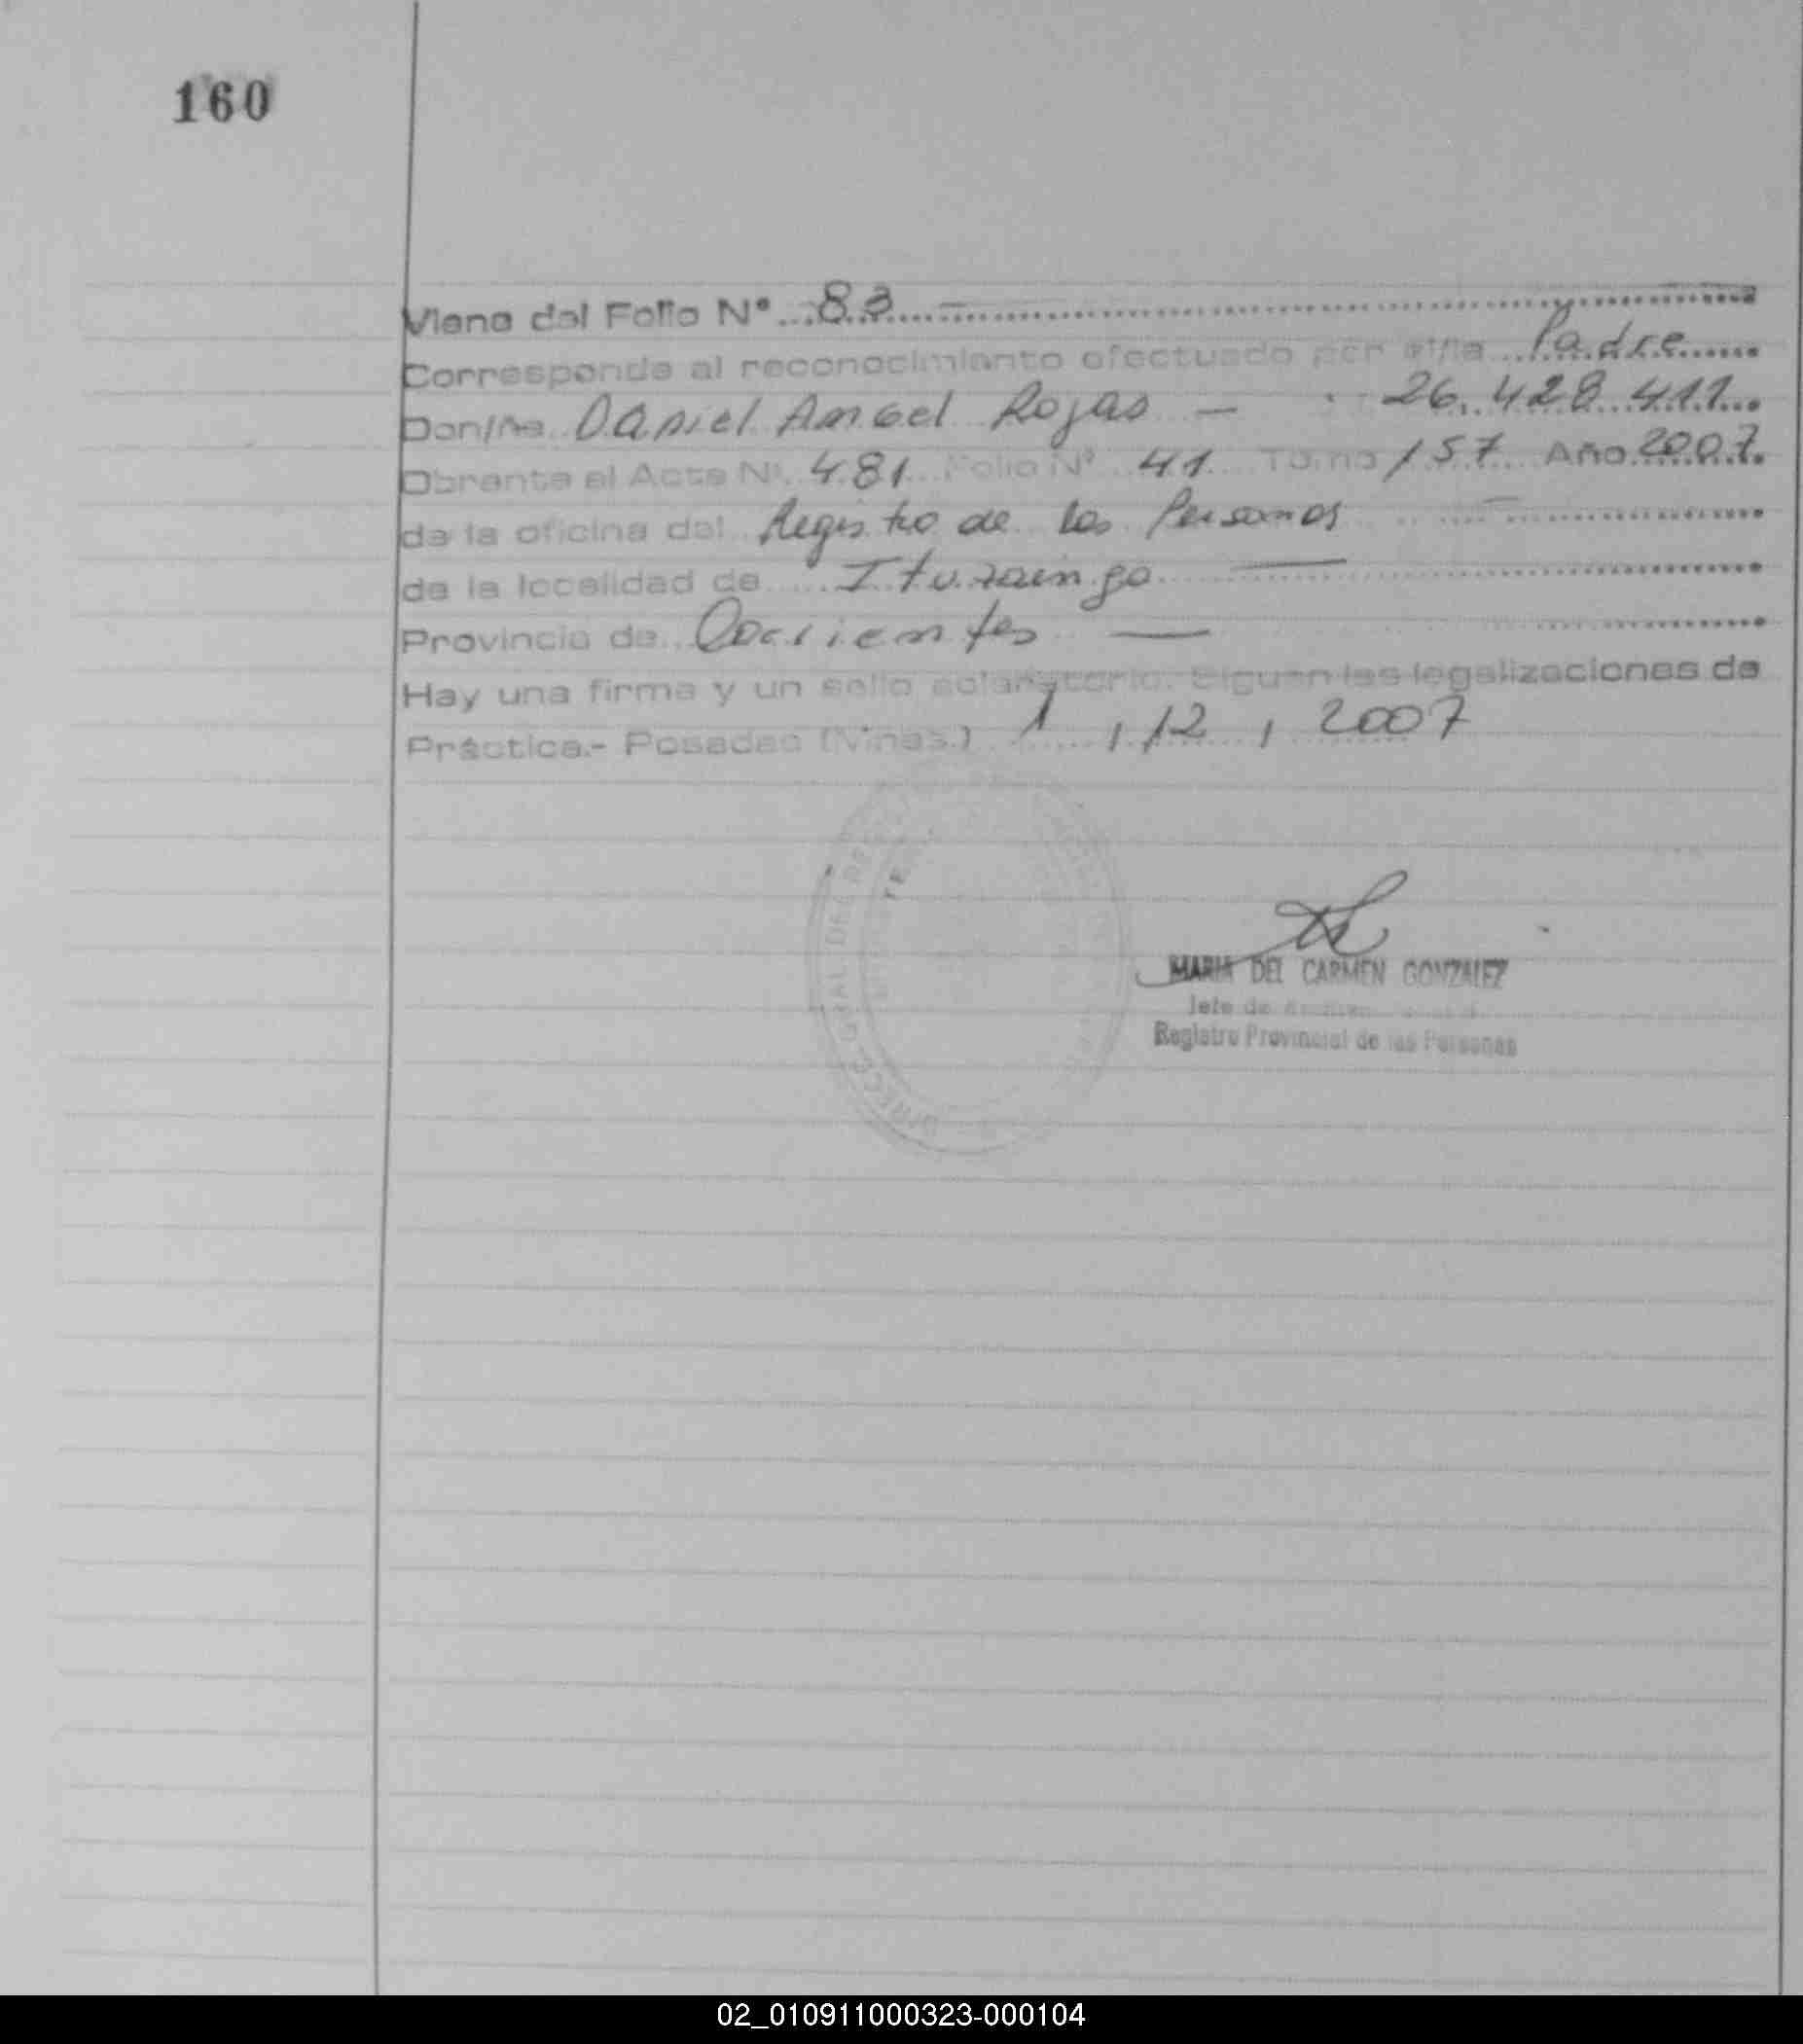 160
Viene del Folio N° 83
Corresponde al reconocimiento efectuado por el/la Padre
Don/ña Daniel Angel Rojas — 26.428.411
Obrante al Acta N° 481 Folio N° 41 Tomo 157 Año 2007.
de la oficina del Registro de las Personas
de la localidad de Ituzaingo
Provincia de Corrientes
Hay una firma y un sello aclaratorio. Siguen las legalizaciones de
Práctica.- Posadas (Mnes.) 1 / 12 / 2007
MARIA DEL CARMEN GONZALEZ
Jefe de
Registro Provincial de las Personas
02_010911000323-000104